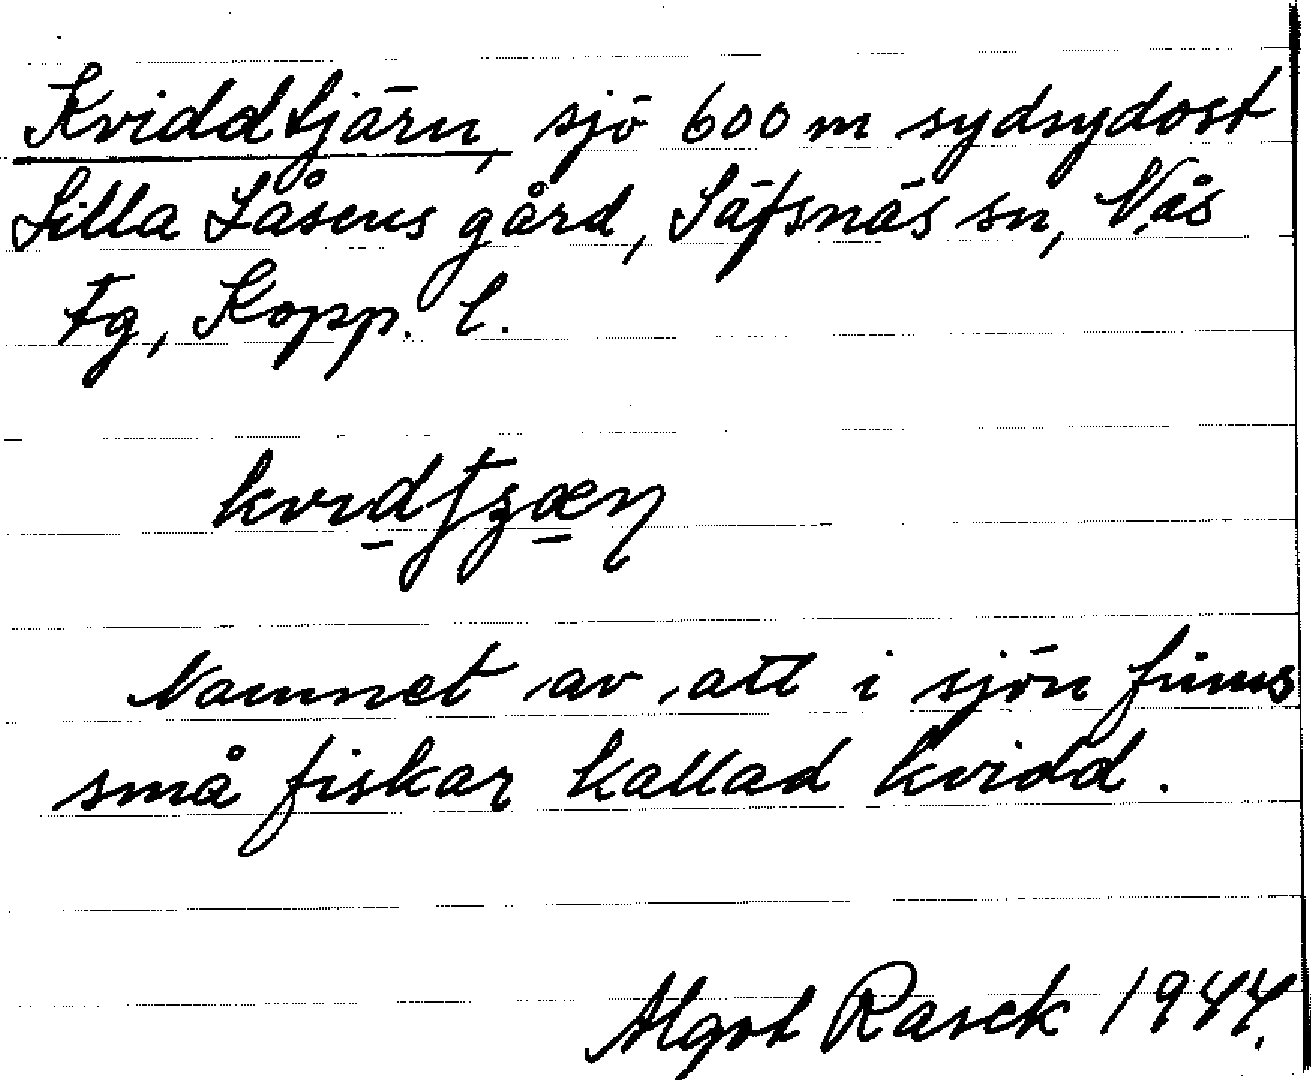 Kviddtjärn, sjö 600 m sydsydost
Lilla Låsens gård, Säfsnäs sn, Nås
Fg, Kopp. l.
Namnet av att i sjön finns
små fiskar kallad kvidd.
Algot Rasck 1944.